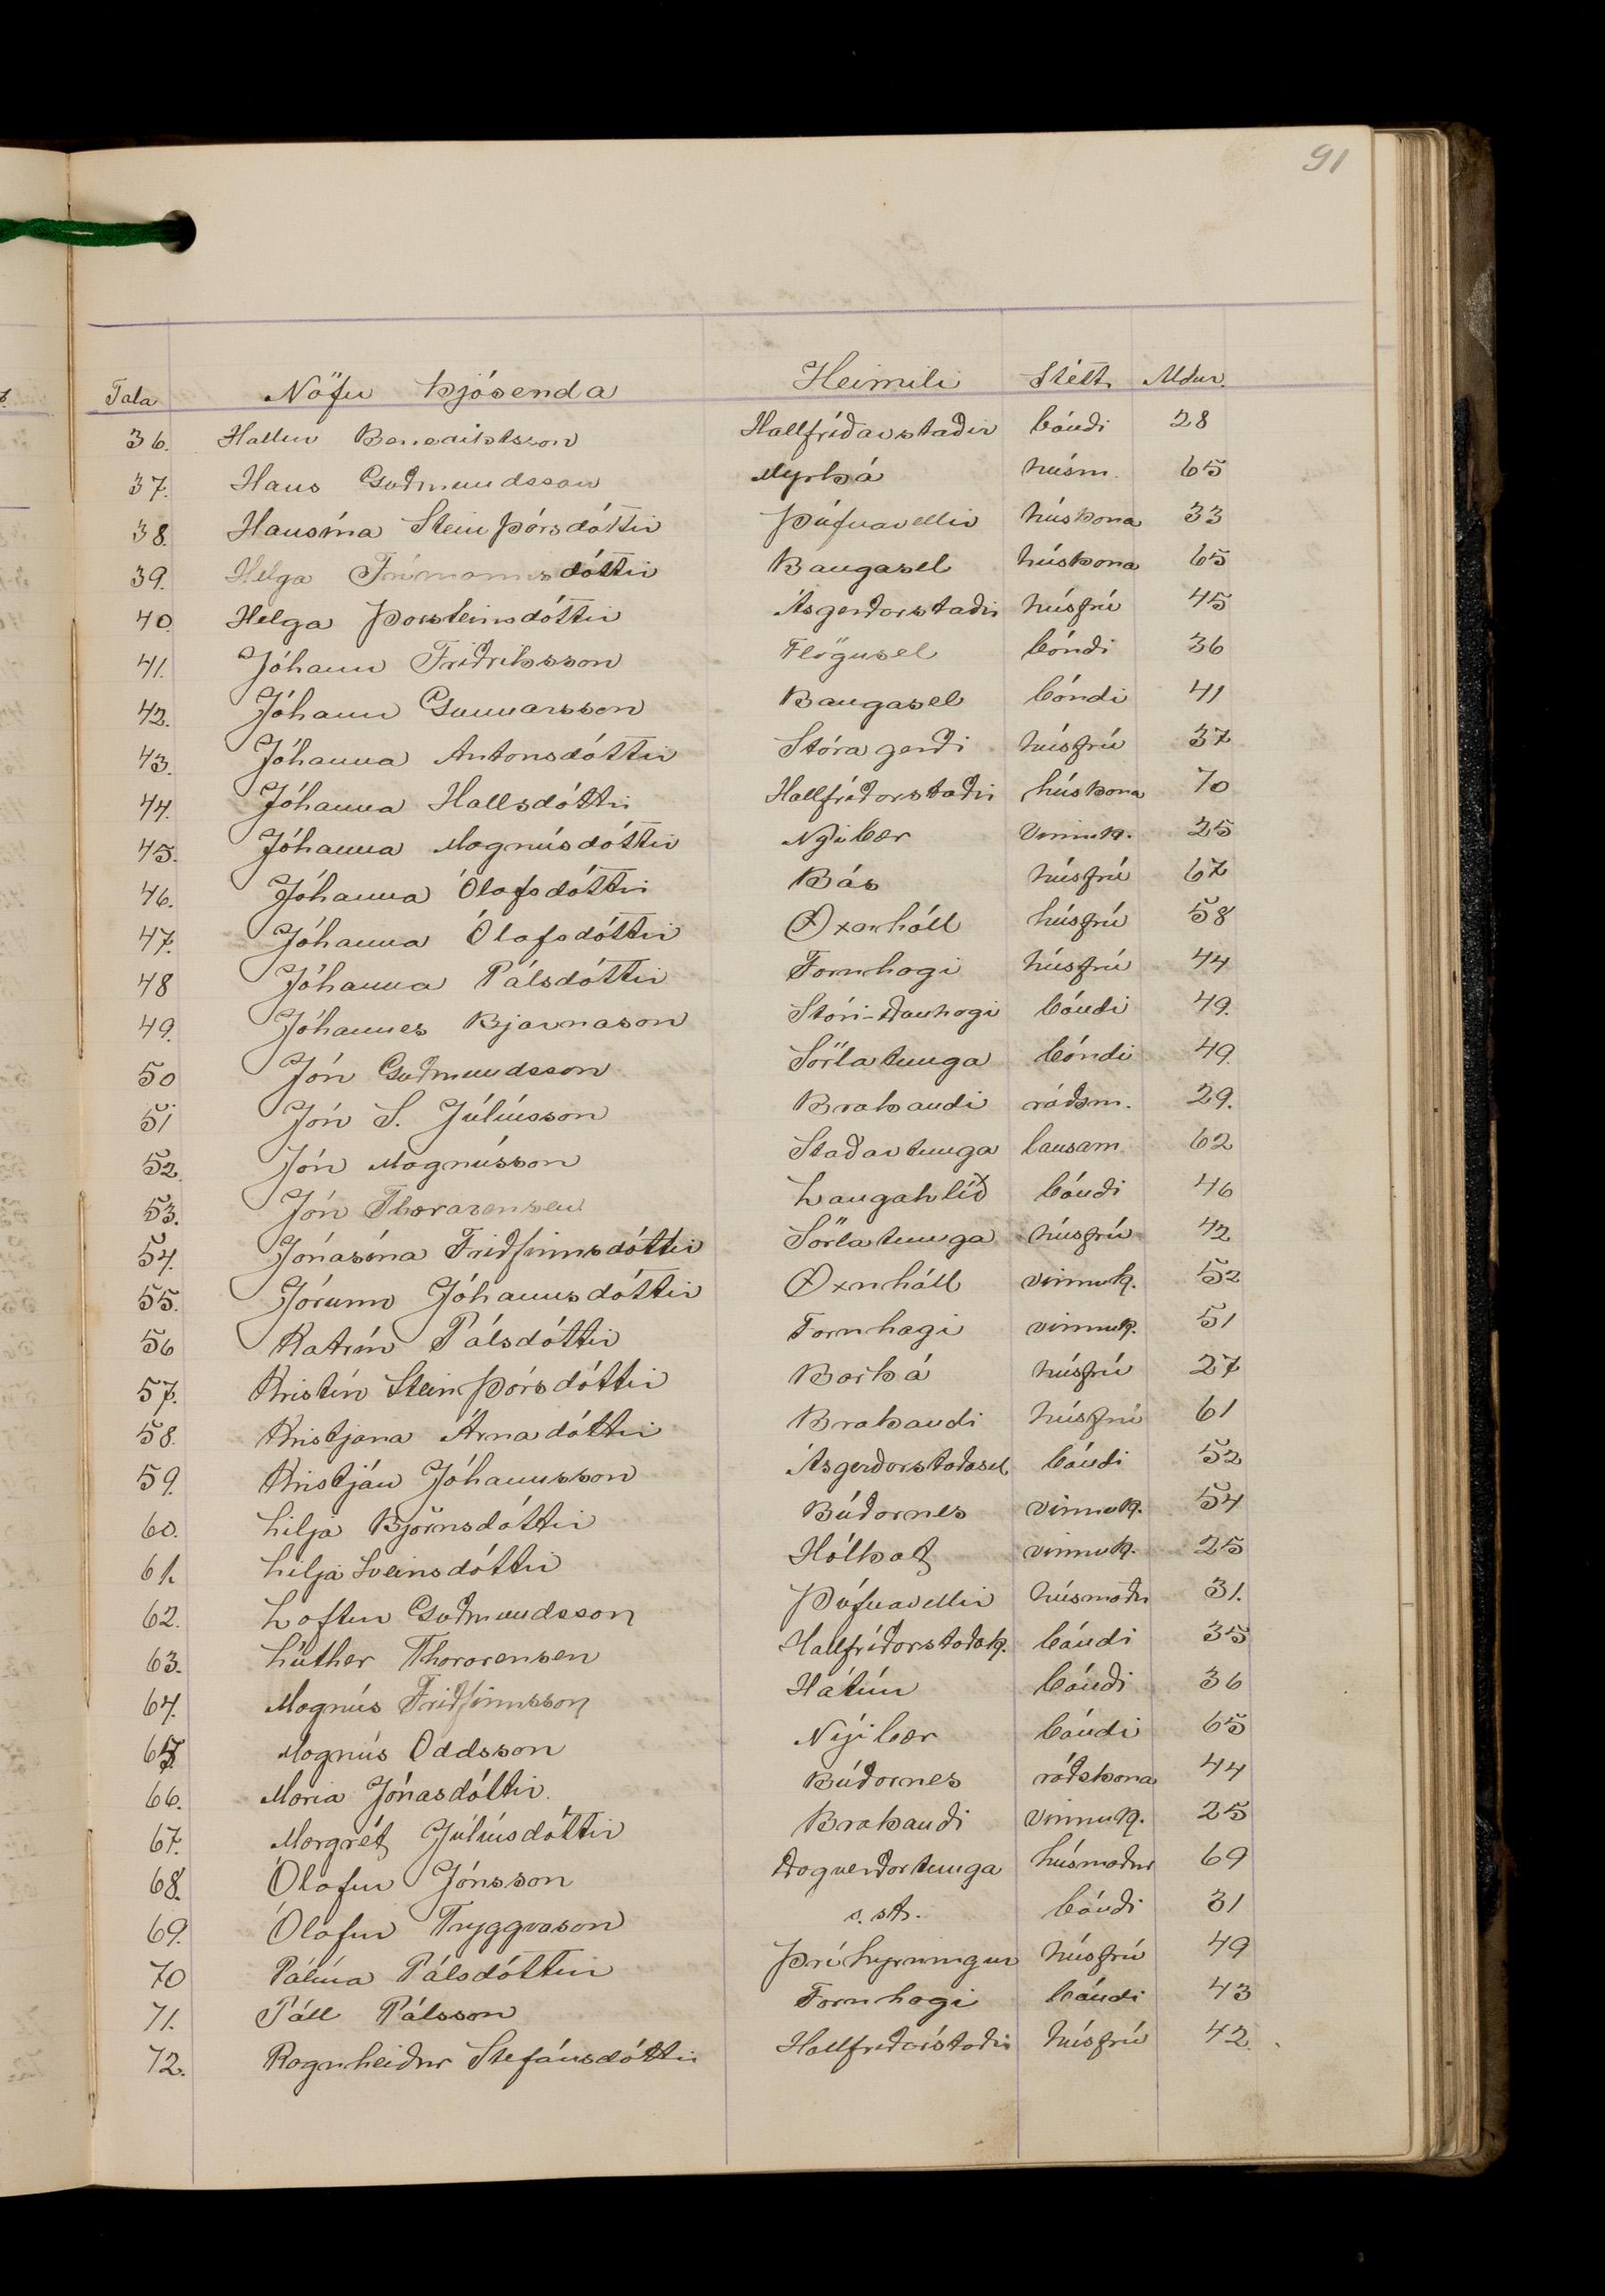 91
Tala Nöfn kjósenda Heimili Stétt Aldur.
36. Hallur Benediktsson Hallfríðarstaðir bóndi 28
37. Hans Guðmundsson Myrká húsm. 65
38. Hansína Steinþórsdóttir Þúfnavellir húskona 33
39. Helga Frímannsdóttir Baugasel húskona 65
40. Helga Þorsteinsdóttir Ásgerðarstaðir húsfrú 45
41. Jóhann Friðriksson Flögusel bóndi 36
42. Jóhann Gunnarsson Baugasel bóndi 41
43. Jóhanna Antonsdóttir Stóragerði húsfrú 37
44. Jóhanna Hallsdóttir Hallfríðarstaðir húskona 70
45. Jóhanna Magnúsdóttir Nýibær vinnuk. 25
46. Jóhanna Ólafsdóttir Bás húsfrú 67
47. Jóhanna Ólafsdóttir Öxnhóll húsfrú 58
48 Jóhanna Pálsdóttir Fornhagi húsfrú 44
49. Jóhannes Bjarnason Stóri-Dunhagi bóndi 49.
50 Jón Guðmundsson Sörlatunga bóndi 49.
51 Jón S. Júlíusson Brakandi ráðsm. 29.
52. Jón Magnússon Staðartunga lausam. 62
53. Jón Thorarensen Langahlíð bóndi 46
54. Jónasína Friðfinnsdóttir Sörlatunga húsfrú 42
55. Jórunn Jóhannsdóttir Öxnhóll vinnuk. 52
56 Katrín Pálsdóttir Fornhagi vinnuk. 51
57. Kristín Steinþórsdóttir Barká húsfrú 27
58. Kristjana Árnadóttir Brakandi húsfrú 61
59. Kristján Jóhannsson Ásgerðarstaðasel bóndi 52
60. Lilja Björnsdóttir Búðarnes vinnuk. 54
61. Lilja Sveinsdóttir Hólkot vinnuk. 25
62. Loftur Guðmundsson Þúfnavellir húsmaður 31.
63. Lúther Thorarensen Hallfríðarstaðak. bóndi 35
64. Magnús Friðfinnsson Hátún bóndi 36
65 Magnús Oddsson Nýibær bóndi 65
66. María Jónasdóttir. Búðarnes ráðskona 44
67. Margrét Júlíusdóttir Brakandi vinnuk. 25
68. Ólafur Jónsson Dagverðartunga húsmaður 69
69. Ólafur Tryggvason s. st. bóndi 31
70 Pálína Pálsdóttir Þríhyrningur húsfrú 49
71. Páll Pálsson Fornhagi bóndi 43
72. Ragnheiður Stefánsdóttir Hallfríðarstaðir húsfrú 42